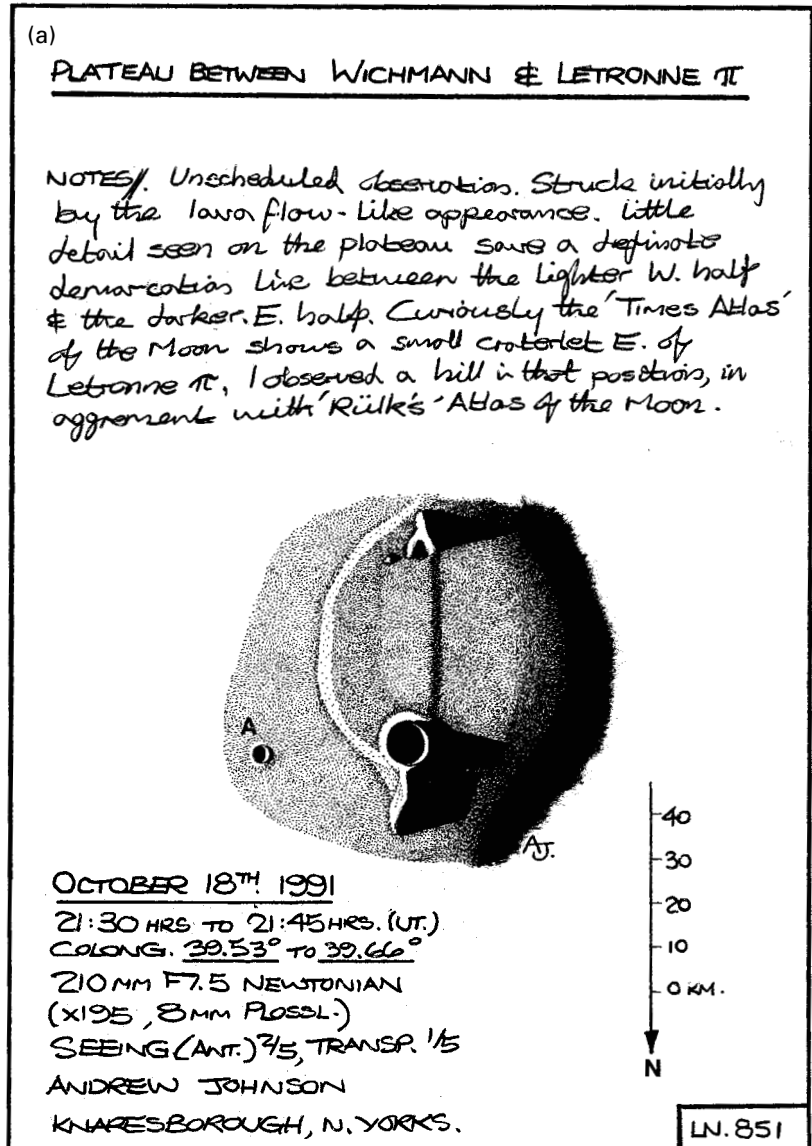 (a)
PLATEAU BETWEEN WICHMANN & LETRONNE π
NOTES//. Unscheduled observation. Struck initially
by the lava flow-like appearance. little
detail seen on the plateau save a definate
demarcation line between the lighter W. half
& the darker. E. half. Curiously the 'Times Atlas'
of the Moon shows a small craterlet E. of
Letronne π, I observed a hill in that position, in
aggrement with 'Rülk's' Atlas of the Moon.
A
AJ.
40
30
20
10
0 KM.
N
OCTOBER 18TH. 1991
21:30 HRS TO 21:45 HRS. (UT.)
COLONG. 39.53° TO 39.66°
210 MM F7.5 NEWTONIAN
(x195, 8MM PLOSSL.)
SEEING (ANT.) 2/5, TRANSP. 1/5
ANDREW JOHNSON
KNARESBOROUGH, N. YORKS.
LN. 851